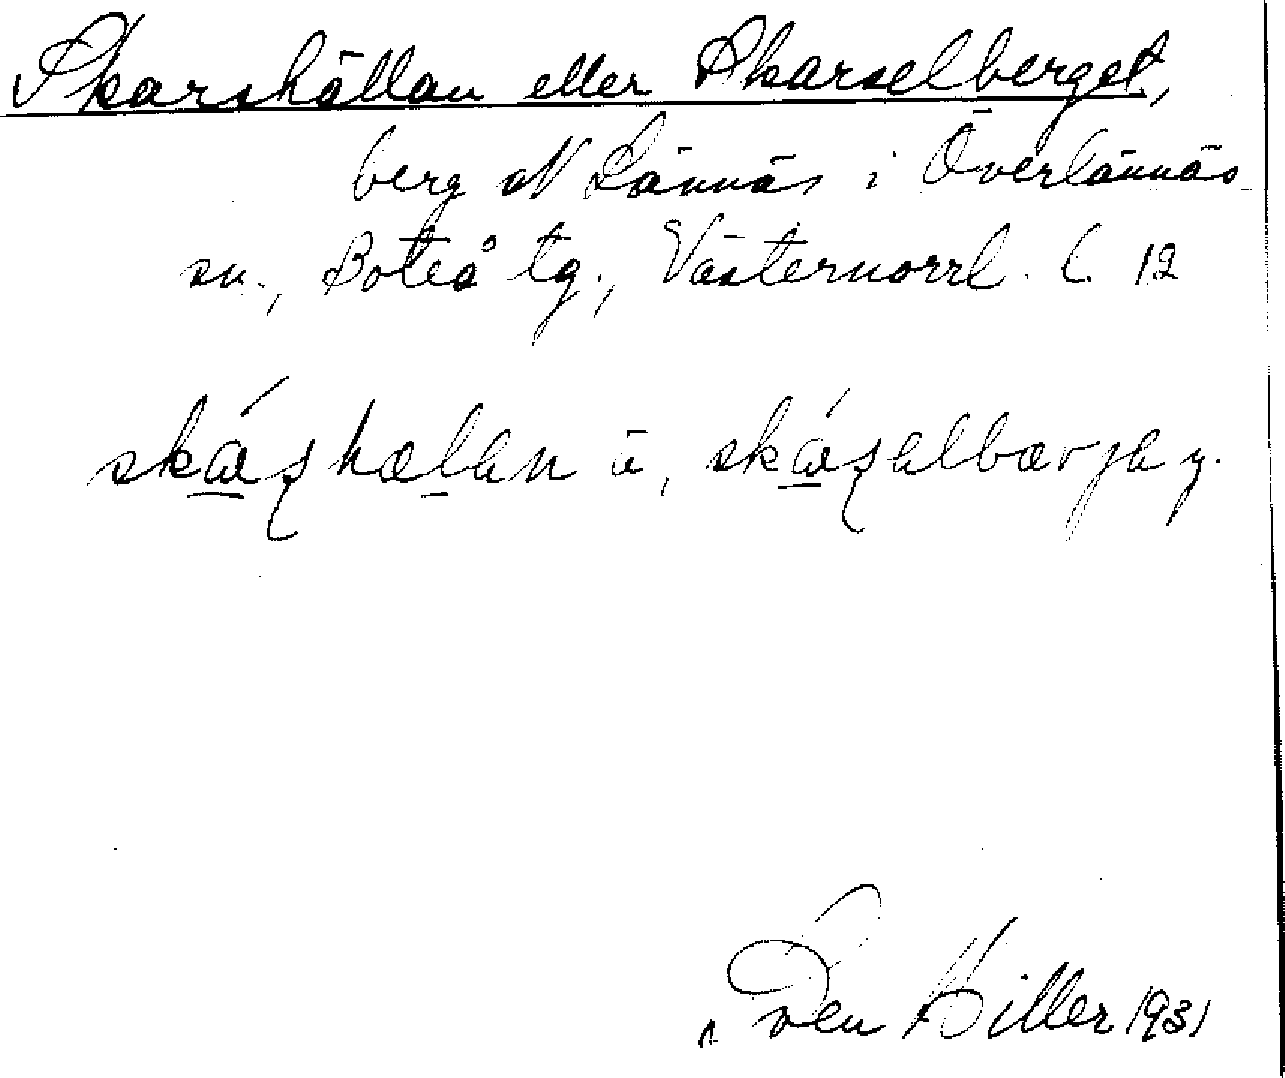 Skarshällan eller Skarselberget,
berg N Lännäs i Överlännäs
sn., Boteå tg., Västernorrl. l. 12
skáʂhælan ä, skáʂalbærja y.
Sven Hiller 1931